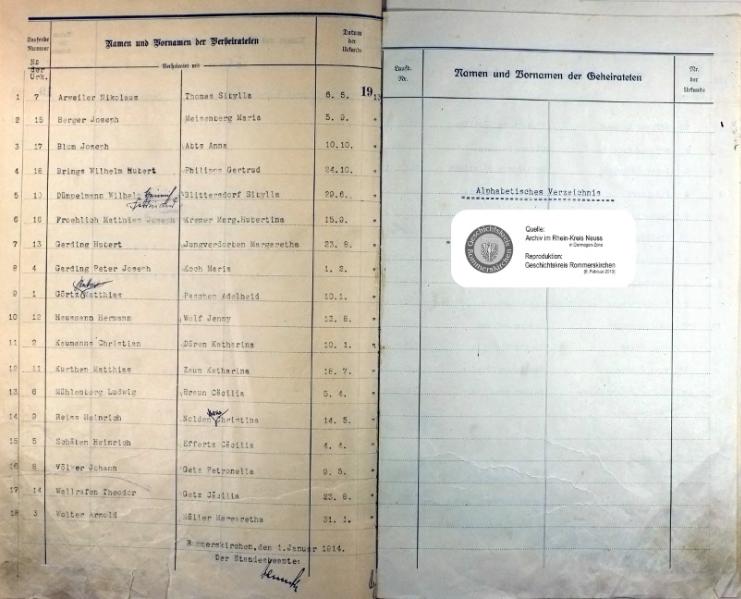 Laufende Nummer Namen und Vornamen der Verheirateten Datum der Urkunde
No der Urk. Verheiratet mit 19 13
1 7 Arweiler Nikolaus Thomas Sibylla 6. 5.
2 15 Berger Joseph Meisenberg Maria 5. 9. "
3 17 Blum Joseph Abts Anna 10.10. "
4 18 Brings Wilhelm Hubert Philipps Gertrud 24.10. "
5 10 Dümpelmann Wilhelm Blittersdorf Sibylla 20.6. "
6 16 Froehlich Matthias Joseph Kremer Marg.Hubertina 15.9. "
7 13 Gerding Hubert Jungverdorben Margaretha 23. 8. "
8 4 Gerding Peter Joseph Koch Maria 1. 2. "
9 1 Görtz Matthias Paschen Adelheid 10.1. "
10 12 Hermann Wolf Jenny "
11 2 Kaumanns Christian Düren Katharina 10. 1. "
12 11 Kurthen Matthias Zaun Katharina 18. 7. "
13 6 Mühlenberg Ludwig Braun Cäcilia 5. 4. "
14 9 Heinrich Nolden Christina 14. 5. "
15 5 Schäfen Heinrich Efferts Cäcilia 4. 4. "
16 8 Völker Johann Getz Petronella 9. 5. "
17 14 Wallrafen Theodor Getz Cäcilia 23. 8. "
18 3 Wolter Arnold Müller Margaretha 31. 1. "
Rommerskirchen,den 1.Januar 1914.
Der Standesbeamte:
Laufd. Nr. Namen und Vornamen der Geheirateten Nr. der Urkunde
Alphabetisches Verzeichnis
Geschichtskreis Rommerskirchen
Quelle:
Archiv im Rhein-Kreis Neuss
in Dormagen-Zons
Reproduktion:
Geschichtskreis Rommerskirchen